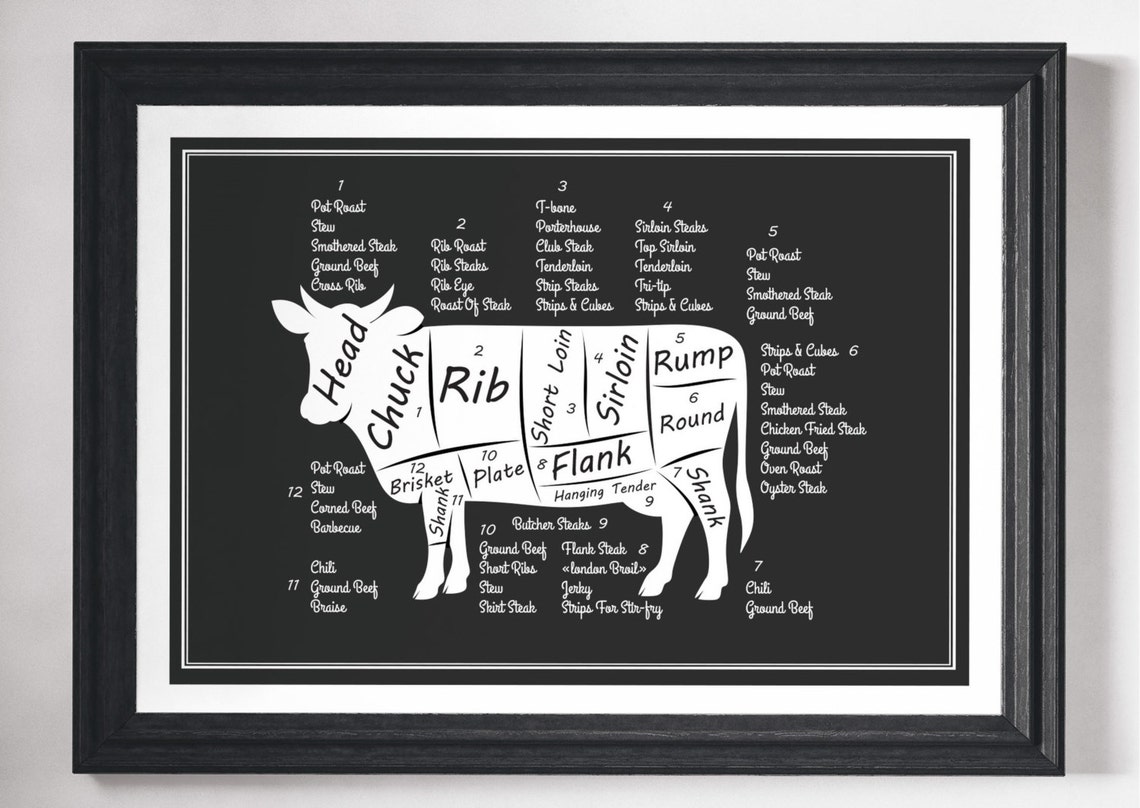 1
Pot Roast
Stew
Smothered Steak
Ground Beef
Cross Rib
2
Rib Roast
Rib Steaks
Rib Eye
Roast Of Steak
3
T-bone
Porterhouse
Club Steak
Tenderloin
Strip Steaks
Strips & Cubes
4
Sirloin Steaks
Top Sirloin
Tenderloin
Tri-tip
Strips & Cubes
5
Pot Roast
Stew
Smothered Steak
Ground Beef
Strips & Cubes 6
Pot Roast
Stew
Smothered Steak
Chicken Fried Steak
Ground Beef
Oven Roast
Oyster Steak
Head
Chuck
1
2
Rib
Short Loin
3
4
Sirloin
5
Rump
6
Round
12
Brisket
10
Plate
8
Flank
Hanging Tender
9
7
Shank
Shank
11
12
Pot Roast
Stew
Corned Beef
Barbecue
11
Chili
Ground Beef
Braise
10
Ground Beef
Short Ribs
Stew
Skirt Steak
Butcher Steaks 9
Flank Steak 8
«london Broil»
Jerky
Strips For Stir-fry
7
Chili
Ground Beef